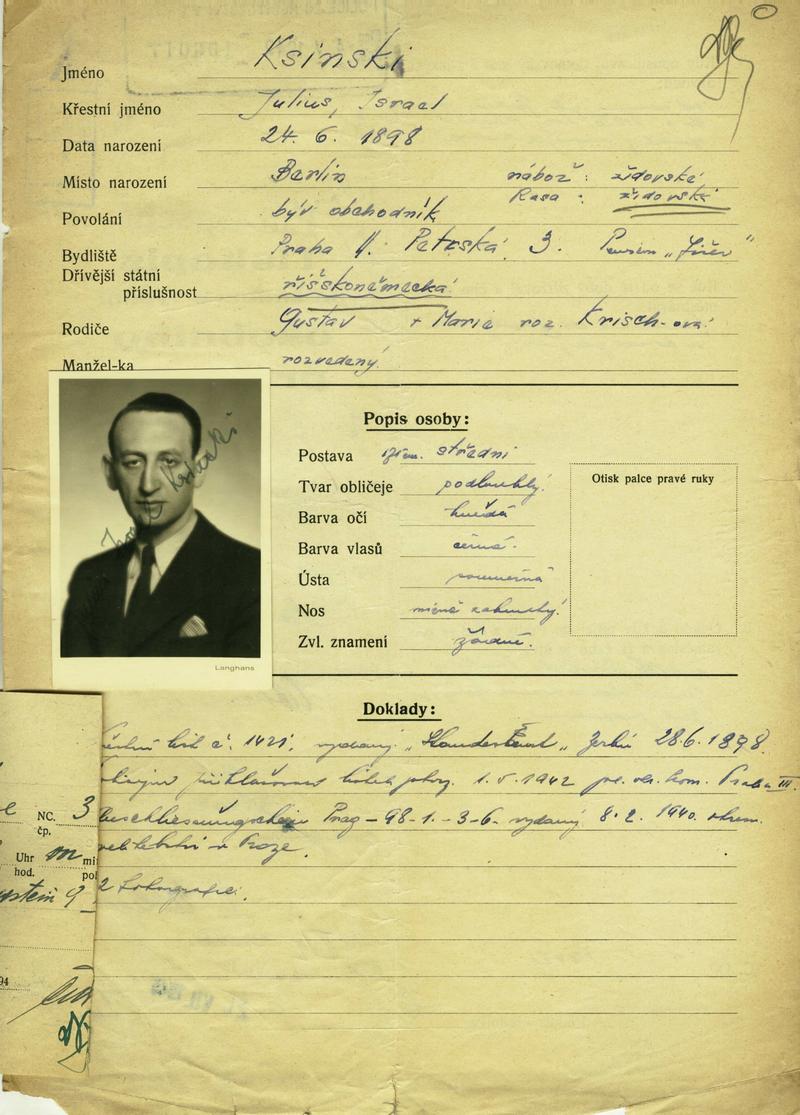 Jméno Ksinski
Křestní jméno Julius, Israel
Data narození 24. 6. 1898
Místo narození Berlin nábož: židovské
Rasa: židovská
Povolání býv obchodník
Bydliště Praha II. Petrská 3. Pension „
Dřívější státní
příslušnost říšskoněmecká
Rodiče Gustav + Marie roz. Krisch-ová
Manžel-ka rozvedený
Popis osoby:
Postava střední
Tvar obličeje podlouhlý
Barva očí hnědá
Barva vlasů černé
Ústa souměrná
Nos mírně zahnutý
Zvl. znamení žádné.
Otisk palce pravé ruky
Langhans
Doklady:
list č. 1421, vydaný „ 28.6.1898.
1.5.1942 Praha III.
Prag-98-1.-3-6. vydaný 8.2.1940.
velitelství v Praze.
2 fotografie.
NC. 3
čp.
Uhr min
hod. pol
94